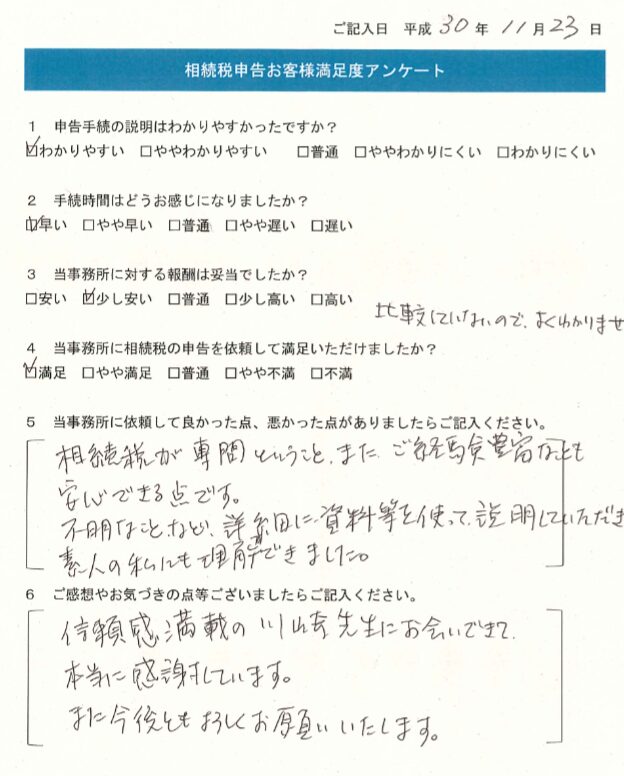 ご記入日 平成 30 年 11 月 23 日
相続税申告お客様満足度アンケート
1 申告手続の説明はわかりやすかったですか？
☑わかりやすい □ややわかりやすい □普通 □ややわかりにくい □わかりにくい
2 手続時間はどうお感じになりましたか？
☑早い □やや早い □普通 □やや遅い □遅い
3 当事務所に対する報酬は妥当でしたか？
□安い ☑少し安い □普通 □少し高い □高い
比較していないので、よくわかりませ
4 当事務所に相続税の申告を依頼して満足いただけましたか？
☑満足 □やや満足 □普通 □やや不満 □不満
5 当事務所に依頼して良かった点、悪かった点がありましたらご記入ください。
相続税が専門ということ、また、ご経験豊富なども
安心できる点です。
不明なことなど、詳細に資料等を使って、説明していただき
素人の私にも理解できました。
6 ご感想やお気づきの点等ございましたらご記入ください。
信頼感満載の川崎先生にお会いできて、
本当に感謝しています。
また今後ともよろしくお願いいたします。